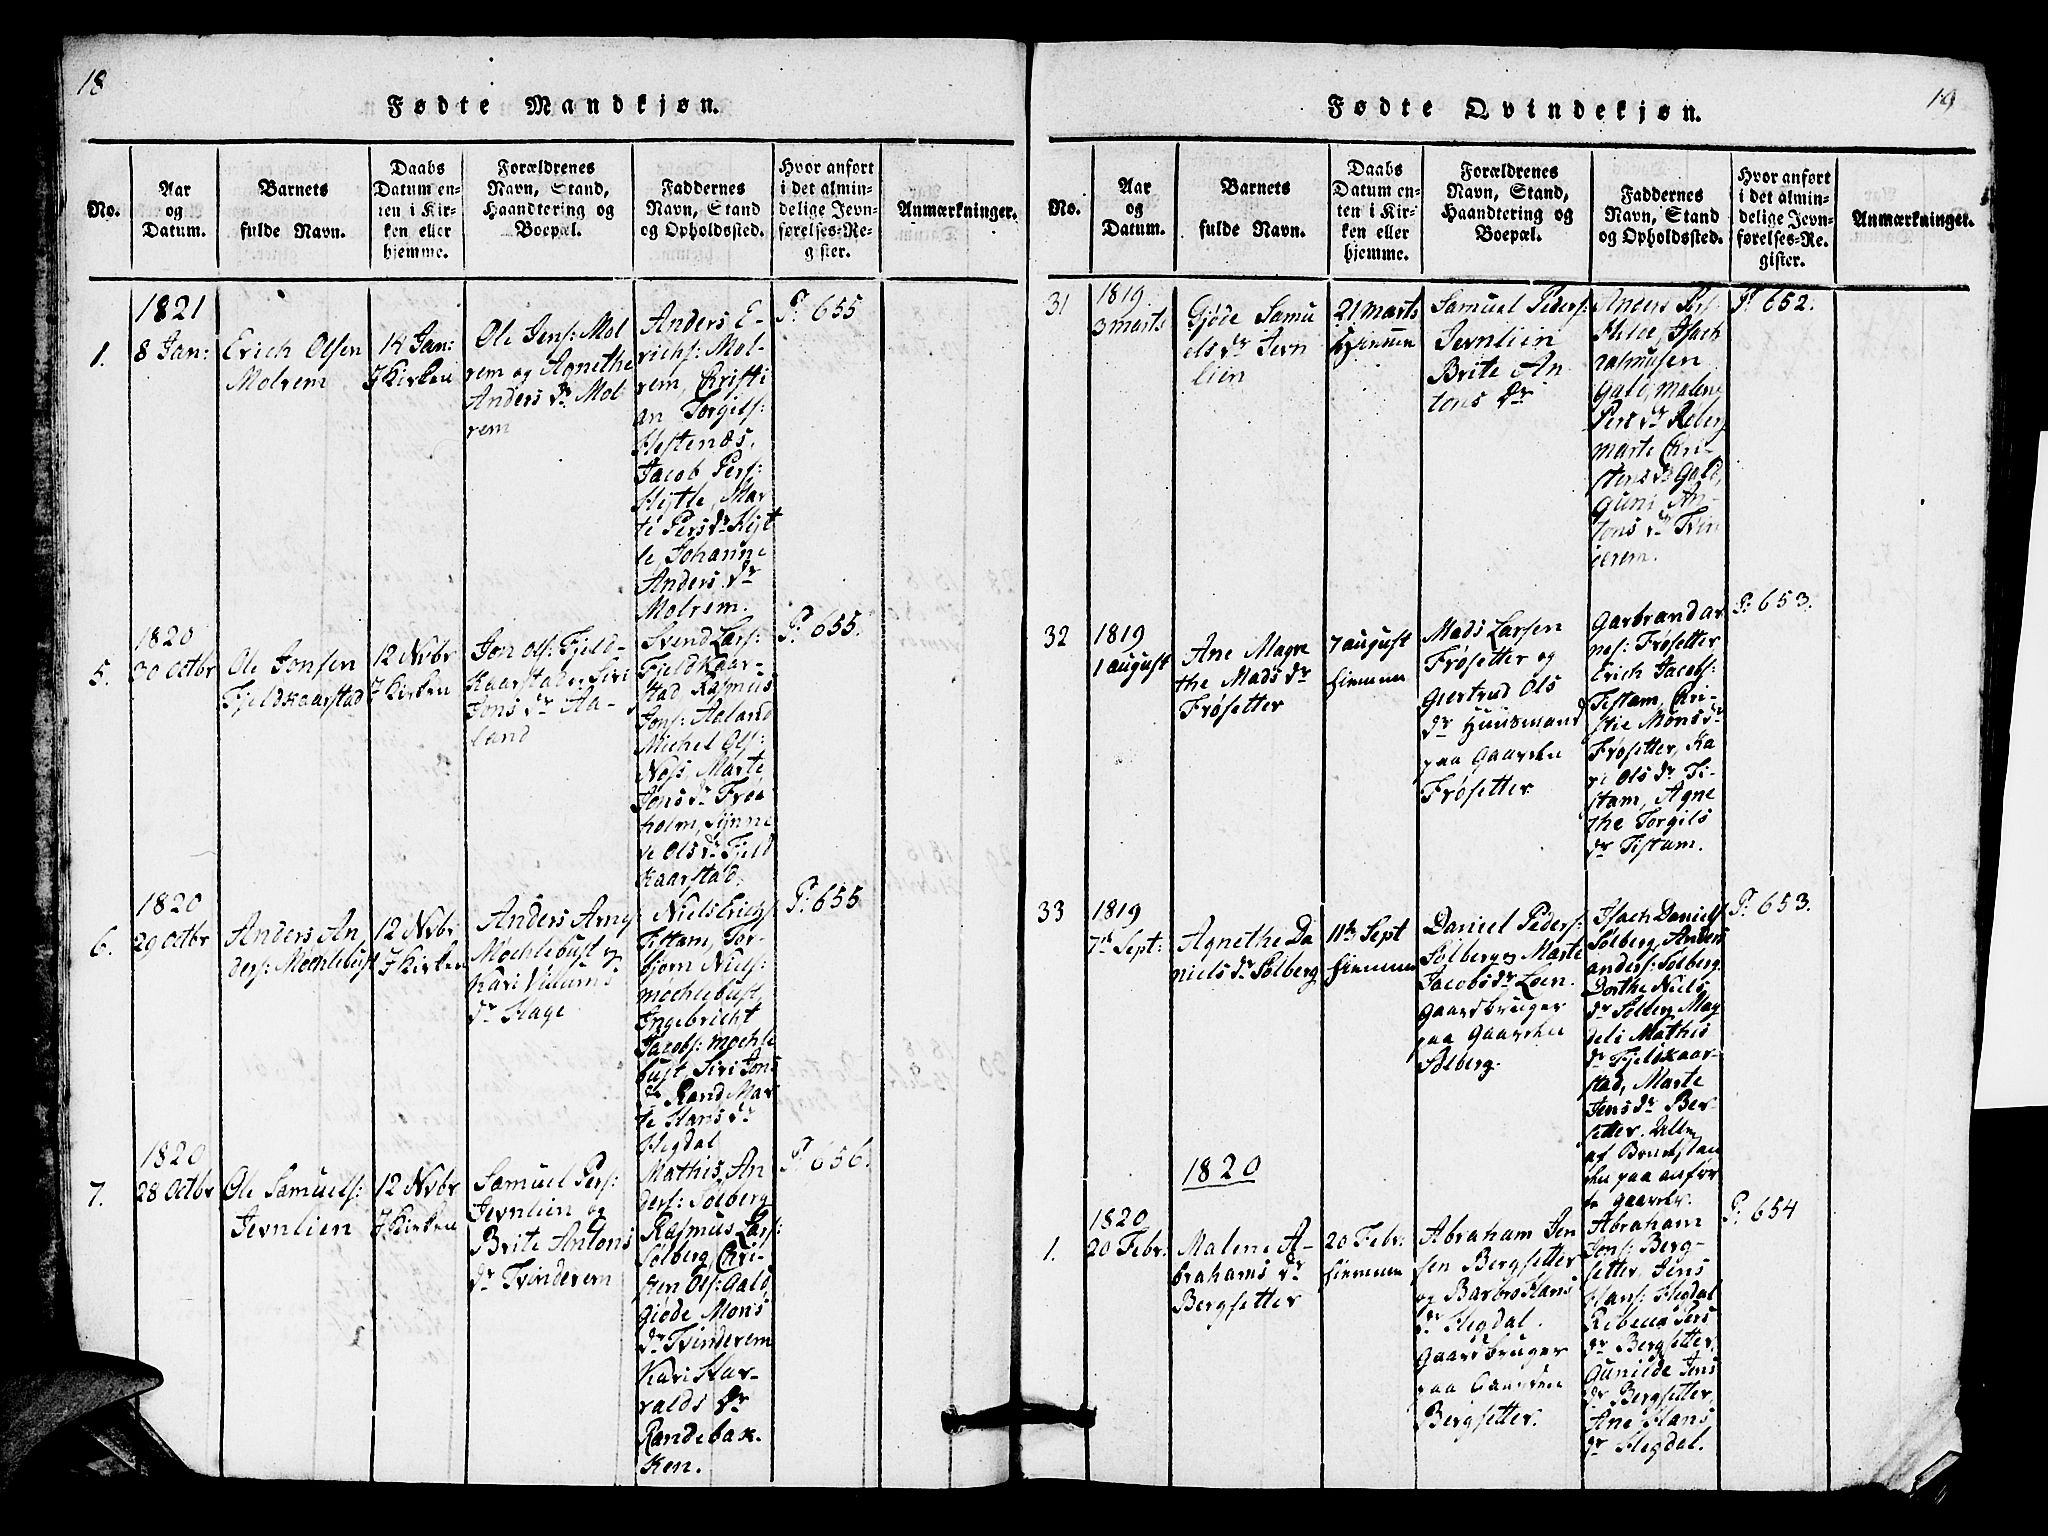 18
Fødte Mandkjøn.
No.
Aar
og
Datum.
Barnets
fulde Navn.
Daabs
Datum en-
ten i Kir-
ken eller
hjemme.
Forældrenes
Navn, Stand,
Haandtering og
Boepæl.
Faddernes
Navn, Stand
og Opholdssted.
Hvor anført
i det almin-
delige Jevn-
førelses-Re-
gister.
Anmærkninger.
1.
1821
8 Jan:
Erich Olsen
Molrem
14 Jan:
I Kirken
Ole Jens: Mol
rem og Agnethe
Anders dr Mol
rem
Anders E-
richs: Mol-
rem, Christi
an Torgils:
Hestenæs,
Jacob Pers:
Hytle, Mar-
te Pers dr Hyt
le, Johanne
Anders dr
Molrem.
P: 655
5.
1820
30 Octbr
Ole Jonsen
Fjeldkaarstad
12 Nvbr
I Kirken
Jon Ols: Fjeld-
kaarstad og Siri
Jons dr Aa-
land
Svend Lars:
Fjeldkaar-
stad Rasmus
Jons: Aaland
Michel Ols:
Nos, Marte
Jons dr Froe
holm, Synne
ve Ols dr Fjeld
kaarstad.
P: 655.
6.
1820
29 Octbr
Anders An
ders: Mochlebust
12 Nvbr
I Kirken
Anders Arne
Mochlebust og
Kari Villums
dr Hage
Niels Erichs:
Tistam, Tor-
bjørn Niels:
mochlebust,
Ingebricht
Jacobs: mochle
bust, Siri Jons
dr Rand Mar
te Hans dr
Hegdal
P: 655
7.
1820
28 Octbr
Ole Samuels:
Jevnlien
12 Nvbr
I Kirken
Samuel Pers:
Jevnlien og
Brite Antons
dr Tvinderem
Mathis An
ders: Solberg
Rasmus Lars:
Solberg, Chri-
sten Ols: Gald,
giøde Mons
dr Tvinderem
Kari Har-
ralds dr
Randebak-
ken.
P: 656.
19
Fødte Qvindekjøn.
No.
Aar
og
Datum.
Barnets
fulde Navn.
Daabs
Datum en-
ten i Kir-
ken eller
hjemme.
Forældrenes
Navn, Stand,
Haandtering og
Boepæl.
Faddernes
Navn, Stand
og Opholdssted.
Hvor anført
i det almin-
delige Jevn-
førelses-Re-
gister.
Anmærkninger.
31
1819.
3 marts
Gjøde Samu
els dr Jevn
lien
21 marts
Hiemme
Samuel Peders:
Jevnlien
Brite An
tons dr
Anders
Isach
rasmusen
Gald, malene
Pers dr Reberg
marte Chri-
stens dr Gald,
Guni An-
tons dr Tvin
derem.
P: 652.
32
1819
1 august
Ane Magre
the Mads dr
Frøsetter
7 august
hiemme
Mads Larsen
Frøsetter og
Giertrud Ols
dr Huusmand
paa Gaarden
Frøsetter
Garbrand ar
nes: Frøsetter,
Erich Jacobs:
Tistam, Chri-
stie Mons dr
Frøsetter, Ka
ri Ols dr Ti-
stam, Agne
the Torgils
dr Tistam.
P: 653.
33
1819
7de Sept:
Agnethe Da
niels dr Solberg
11te Sept
hiemme
Daniel Peders:
Solberg og Marte
Jacobs dr Loen.
gaardbruger
paa Gaarden
Solberg.
Isach Daniels:
Solberg, Anders
anders: Solberg
Dorthe Niels
dr Solberg Mag
deli Mathis
dr Fjeldkaar-
stad, Marte
Jens dr Ber-
setter. alle
af Bondestan
den paa anfør
te gaarder.
P: 653.
1820
1.
1820
20 Febr:
Malene A-
brahams dr
Bergsetter
20 Febr:
hiemme
Abraham Jen
sen Bergsetter
og Barbro Hans
dr Hegdal.
Gaardbruger
paa Gaarden
Bergsetter.
Abraham
Jons: Berg-
setter, Jens
Hans: Hegdal
Rebecca Pers
dr Bergsetter,
Gunilde Jens
dr Bergsetter,
Ane Hans
dr Hegdal.
P: 654